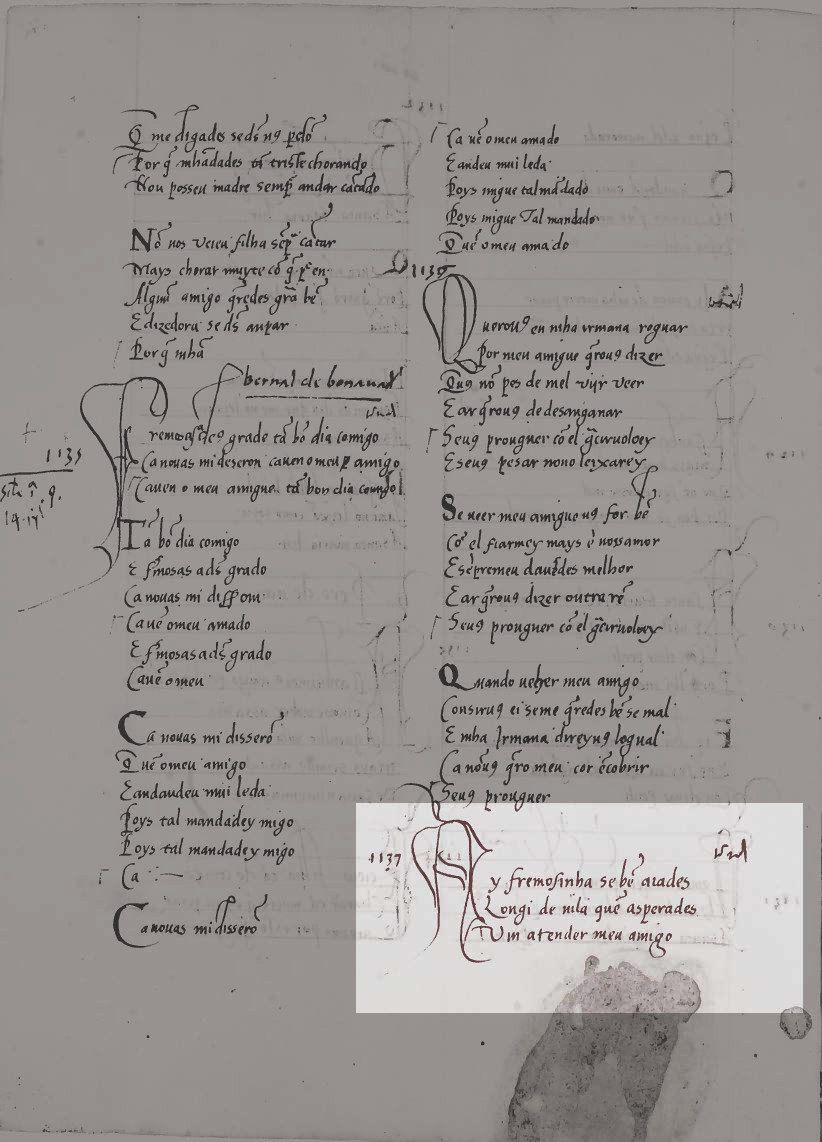 Q̄ me digades se ds̄ uꝯ ꝑdõ
Por q̃ mhãdades tã triste chorando
Nou posseu madre semp̃ andar cãtãdo
Nõ uos ueieu filha sẽp̃ cãtar
Mays chorar muyte cõ q̃
Alguũ amigo q̃redes grã bẽ
E dizedora se ds̄ anpar
Por q̃ mhã
bernal de bonaual
1135
grade tã bõ dia comigo
Ca nouas mi deseron ca uen o meu amigo
Ca uen o meu amigue tã bon dia comigo
Tã bõ dia comigo
E fr̃mosas a ds̄ grado
Ca nouas mi disserom
Ca uẽ o meu amado
E fr̃mosas a ds̄ grado
Ca uẽ o meu
Ca nouas mi disserõ
Que o meu amigo
E andandeu mui leda
Poys tal mandadey migo
Poys tal mandadey migo
Ca
Ca nouas mi disserõ
Ca uẽ o meu amado
E andeu mui leda
Poys migue tal mãdado
Poys migue Tal mandado
Quẽ o meu amado
1136
Querouꝯ eu mha irmana roguar
Por meu amigue q̃rouꝯ dizer
Quꝯ nõ pes de mel uijr ueer
E ar q̃rouꝯ de desanganar
Seuꝯ prouguer cõ el
E seuꝯ pesar nono leixarey
Se ueer meu amigue uꝯ for bẽ
Cõ el fiarmey mays ẽ uossamor
E sẽpremeu melhor
E ar q̃rouꝯ dizer outra rẽ
Seuꝯ prouguer cõ el
Quando ueher meu amigo
Cousiruꝯ ei se me q̃redes bẽ se mal
E mha Irmana direyuꝯ logual
Ca nõuꝯ q̃ro meu cor ẽcobrir
Seuꝯ prouguer
1137
Ay fremosinha se bẽ aiades
Longi de uila quẽ asperades
Uin atender meu amigo